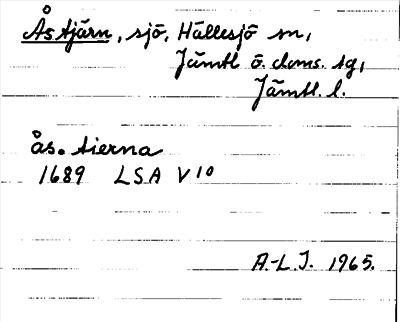 Åstjärn, sjö, Hällesjö sn,
Jämtl ö. doms. tg,
Jämtl. l.
ås. tierna
1689 LSA V 10
A.-L.J. 1965.